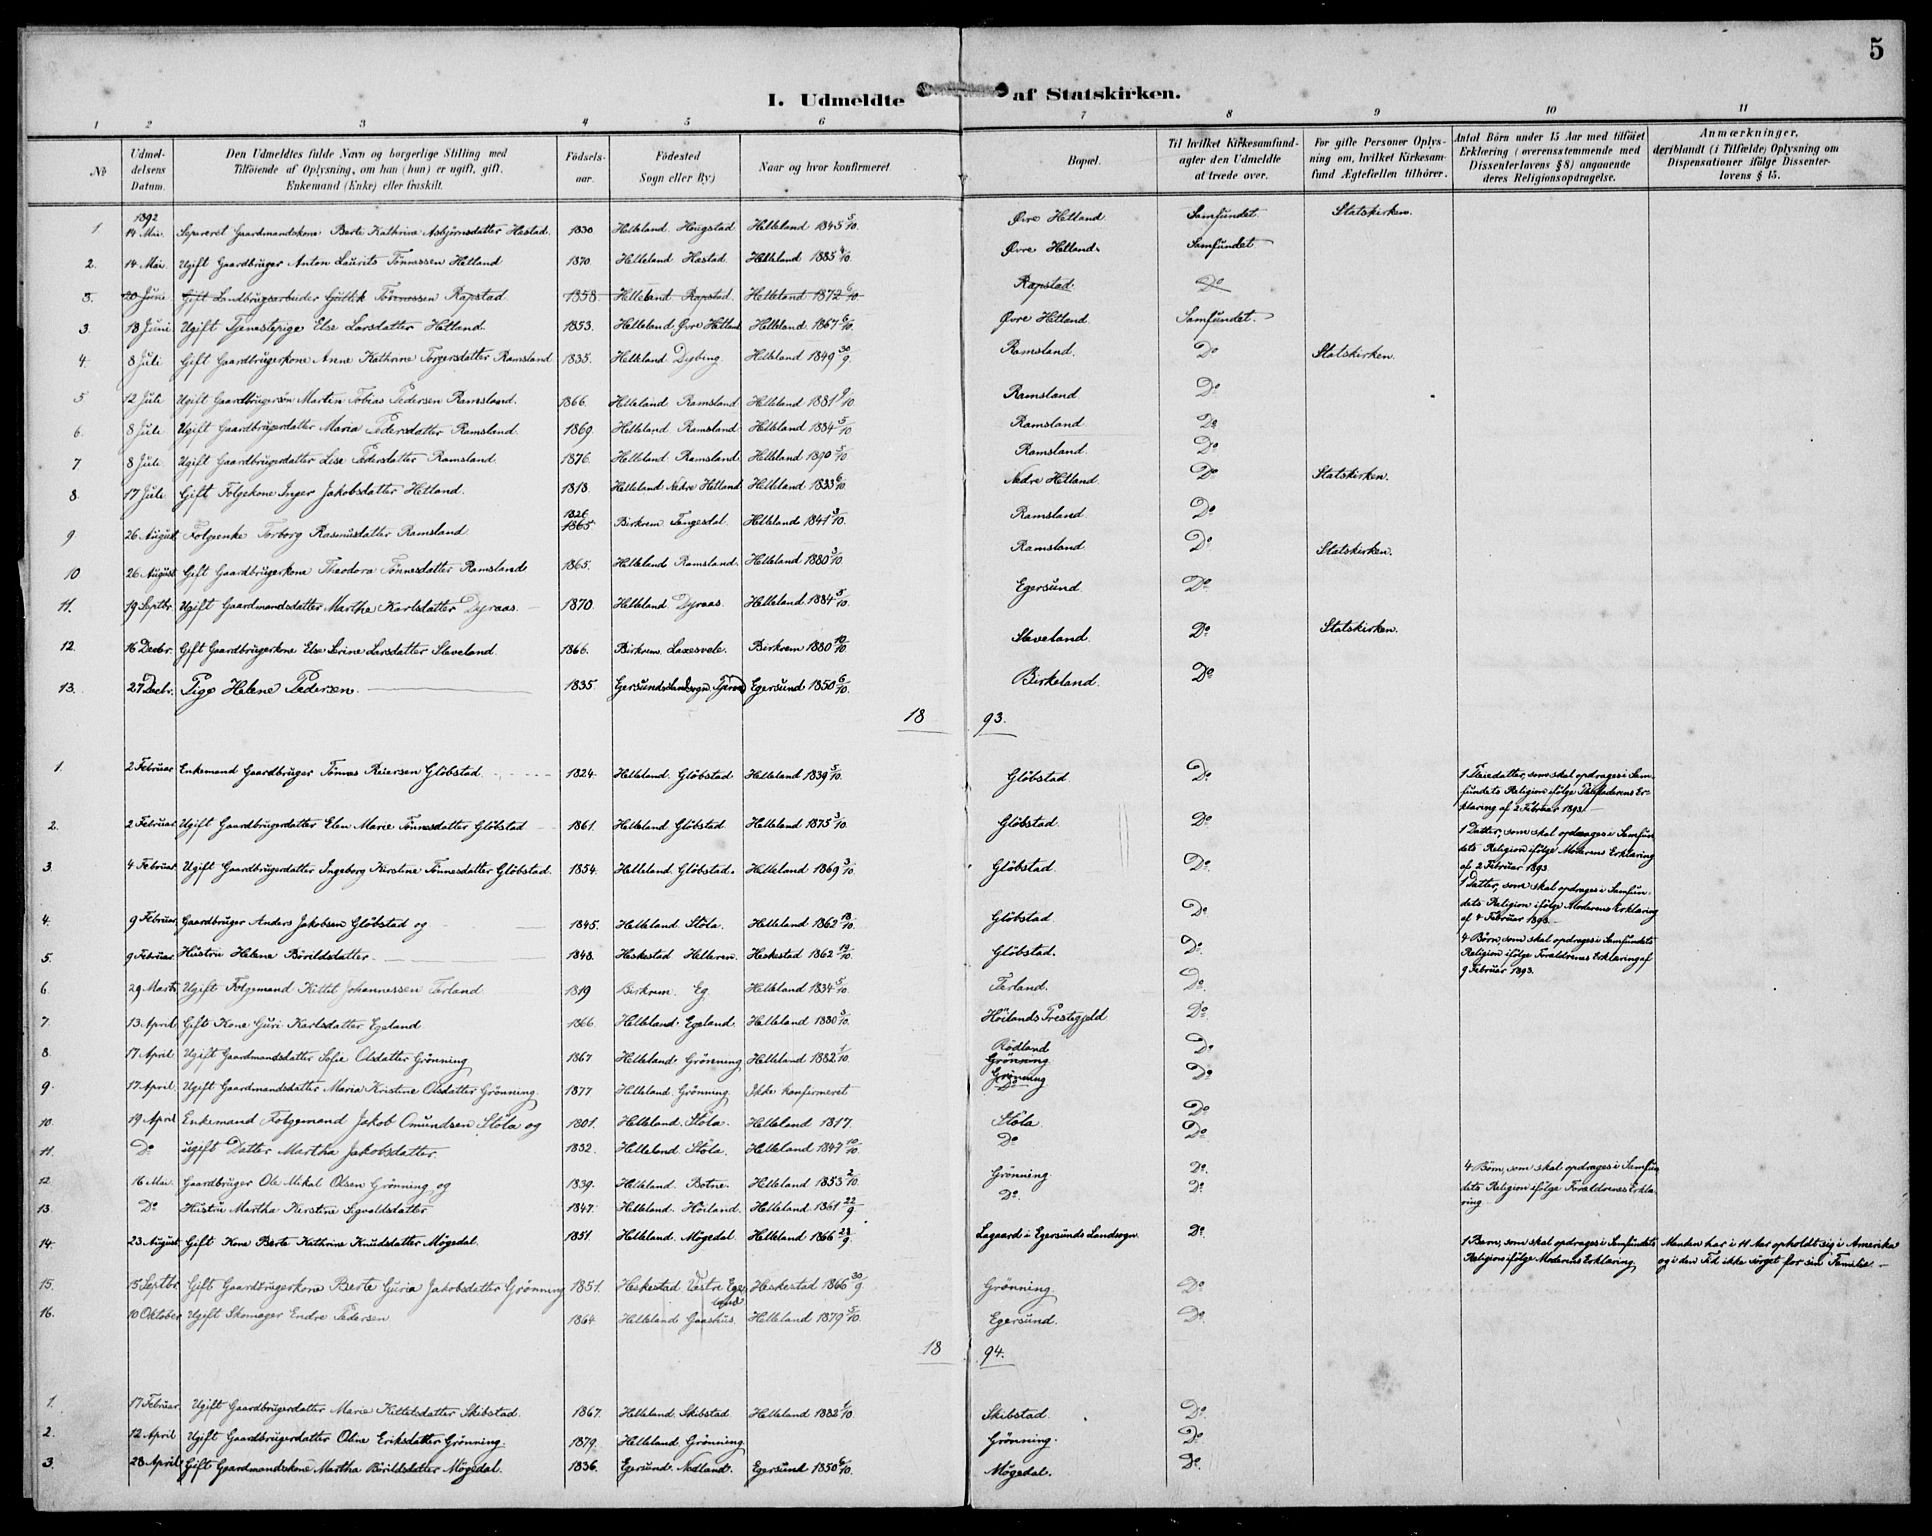 5
I. Udmeldte af Statskirken.
1 2 3 4 5 6 7 8 9 10 11
No
Udmeldelsens Datum.
Den Udmeldtes fulde Navn og borgerlige Stilling med
Tilføiende af Oplysning, om han (hun) er ugift, gift,
Enkemand (Enke) eller fraskilt.
Fødselsaar.
Fødested
Sogn eller By)
Naar og hvor konfirmeret
Bopæl.
Til hvilket Kirkesamfund
agter den Udmeldte
at træde over.
For gifte Personer Oplysning
om, hvilket Kirkesamfund
Ægtefællen tilhører.
Antal Børn under 15 Aar med tilføiet
Erklæring (overensstemmende med
Dissenterlovens § 8) angaaende
deres Religionsopdragelse.
Anmærkninger,
deriblandt (i Tilfælde) Oplysning om
Dispensationer ifølge Dissenterlovens
§ 15.
1892
1 14 Mai. Separeret Gaardmandskone Berte Kathrina Asbjørnsdatter Hæstad 1830 Helleland Hæstad Helleland 1845 5/10. Øvre Hetland Samfundet Statskirken.
2. 14 Mai. Ugift Gaardbruger Anton Laurits Tønnessen Hetland 1870. Helleland Hæstad Helleland 1885 4/10. Øvre Hetland. Samfundet
3. 20 Juni Gift Landbrugsarbeider Gjøttik Tønnessen Rapstad 1858. Helleland Rapstad. Helleland 1872 6/10 Rapstad. Do
3. 18 Juni Ugift Tjenestepige Else Larsdatter Hetland. 1853. Helleland Øvre Hetland Helleland 1867 6/10. Øvre Hetland Samfundet.
4. 8 Juli Gift Gaardbrugerkone Anne Kathrine Torgersdatter Ramsland 1835. Helleland Dybing Helleland 1849 30/9. Ramsland. Do Statskirken.
5 12 Juli Ugift Gaardbrugersøn Marten Tobias Pedersen Ramsland. 1866. Helleland Ramsland Helleland 1881 /10 Ramsland Do
6. 8 Juli Ugift Gaardbrugerdatter Maria Pedersdatter Ramsland. 1869. Helleland Ramsland Helleland 1884 5/10 Ramsland Do
7 8 Juli Ugift Gaardbrugerdatter Lise Pedersdatter Ramsland. 1876. Helleland Ramsland Helleland 1890 5/10 Ramsland. Do
8. 17 Juli Gift Følgekone Inger Jakobsdatter Hetland. 1818. Helleland Nedre Hetland Helleland 1833 6/10. Nedre Hetland Do Statskirken.
9 26 August Følgenke Torborg Rasmusdatter Ramsland 1826 1865. Birkrem Tengesdal Helleland 1841 3/10. Ramsland Do
10 26 August Gift Gaardbrugerkone Theodora Tønnesdatter Ramsland 1865. Helleland Ramsland. Helleland 1880 3/10. Ramsland Do Statskirken.
11. 19 Septbr. Ugift Gaardmandsdatter Martha Karlsdatter Dyraas. 1870 Helleland Dyraas. Helleland 1884 5/10. Egersund Do
12. 16 Decbr. Gift Gaardbrugerkone Else Serine Larsdatter Sleveland. 1866. Birkrem Laxesvele. Birkrem 1880 10/10. Sleveland. Do Statskirken.
13. 27 Decbr. Pige Helene Pedersen. 1835. Egersunds Landsogn Egersund 1850 6/10. Birkeland. Do
18 93.
1. 2 Februar Enkemand Gaardbruger Tønnes Reiersen Gløbstad 1824. Helleland. Gløbstad Helleland 1839 5/10. Gløbstad Do 1 Pleiedatter, som skal opdrages i Samfundets Religion ifølge Pleiefaderens Erklæring af 2 Februar 1893.
2. 2 Februar Ugift Gaardbrugerdatter Elen Marie Tønnesdatter Gløbstad 1861. Helleland Gløbstad Helleland 1875 3/10. Gløbstad. Do 1 Datter, som skal opdrages i Samfundets Religion ifølge Moderens Erklæring af 2 Februar 1893
3. 4 Februar Ugift Gaardbrugerdatter Ingeborg Kirstine Tønnesdatter Gløbstad. 1854. Helleland Gløbstad. Helleland 1869 3/10. Gløbstad. Do 1 Datter, som skal opdrages i Samfundets Religion ifølge Moderens Erklæring af 4 Februar 1893.
4. 9 Februar Gaardbruger Anders Jakobsen Gløbstad og 1845. Helleland Støla. Helleland 1862 18/10. Gløbstad Do
5. 9 Februar Hustru Helene Børildsdatter 1848. Heskestad Helleren. Heskestad 1862 19/10. Gløbstad. Do 4 Børn, som skal opdrages i Samfundets Religion ifølge Forældrenes Erklæring af 9 Februar 1893.
6. 29 Marts Ugift Følgemand Kittil Johannessen Terland 1819 Birkrem. Eg. Helleland 1834 5/10. Terland. Do
7. 13 April Gift Kone Guri Karlsdatter Egeland 1866 Helleland. Egeland Helleland 1880 3/10. Høilands Prestegjeld Do
8. 17 April Ugift Gaardmandsdatter Sofie Olsdatter Grønning 1867 Helleland Grønning Helleland 1882 1/10. Rødland Grønning Do
9. 17 April Ugift Gaardmandsdatter Maria Kristine Olsdatter Grønning 1877 Helleland Grønning Ikke konfirmeret Grønning Do Do
10. 19 April Enkemand Følgemand Jakob Omundsen Støla og 1801. Helleland Støla. Helleland 1817. Støla. Do
11. Do ugift Datter Martha Jakobsdatter. 1832. Helleland Støla. Helleland 1847 10/10. Do Do
12. 16 Mai. Gaardbruger Ole Mikal Olsen Grønning og 1839. Helleland. Botne. Helleland 1853 2/10. Grønning Do 4 Børn, som skal opdrages i Samfundets Religion ifølge Forældrenes Erklæring
13. Do Hustru Martha Kerstine Sigvaldsdatter 1847. Helleland. Høiland. Helleland 1861 22/9 Do. Do
14. 23 August Gift Kone Berte Kathrine Knudsdatter Møgedal. 1851. Helleland. Møgedal. Helleland 1866 23/9. Lagaard i Egersunds Landsogn. Do 1 Barn, som skal opdrages i Samfundets Religion ifølge Moderens Erklæring. Manden har i 11 Aar opholdt sig i Amerika og i den Tid ikke sørget for sin Familie.
15. 15 Septbr. Gift Gaardbrugerkone Berte Guria Jakobsdatter Grønning 1851. Heskestad Vestre Egeland Heskestad 1866 30/9 Grønning. Do
16. 10 Oktober Ugift Skomager Endre Pedersen 1864 Helleland Gaashus. Helleland 1879 5/10. Egersund. Do
18 94.
1. 17 Februar Ugift Gaardbrugerdatter Marie Kittelsdatter Skibstad. 1867. Helleland Skibstad. Helleland 1882 1/10. Skibstad. Do
2. 12 April Ugift Gaardbrugerdatter Oline Eriksdatter Grønning. 1879. Helleland. Grønning Grønning. Do
3. 28 April Gift Gaardmandskone Martha Børildsdatter Møgedal. 1836. Egersund. Nodland. Egersund 1850 6/10. Møgedal. Do